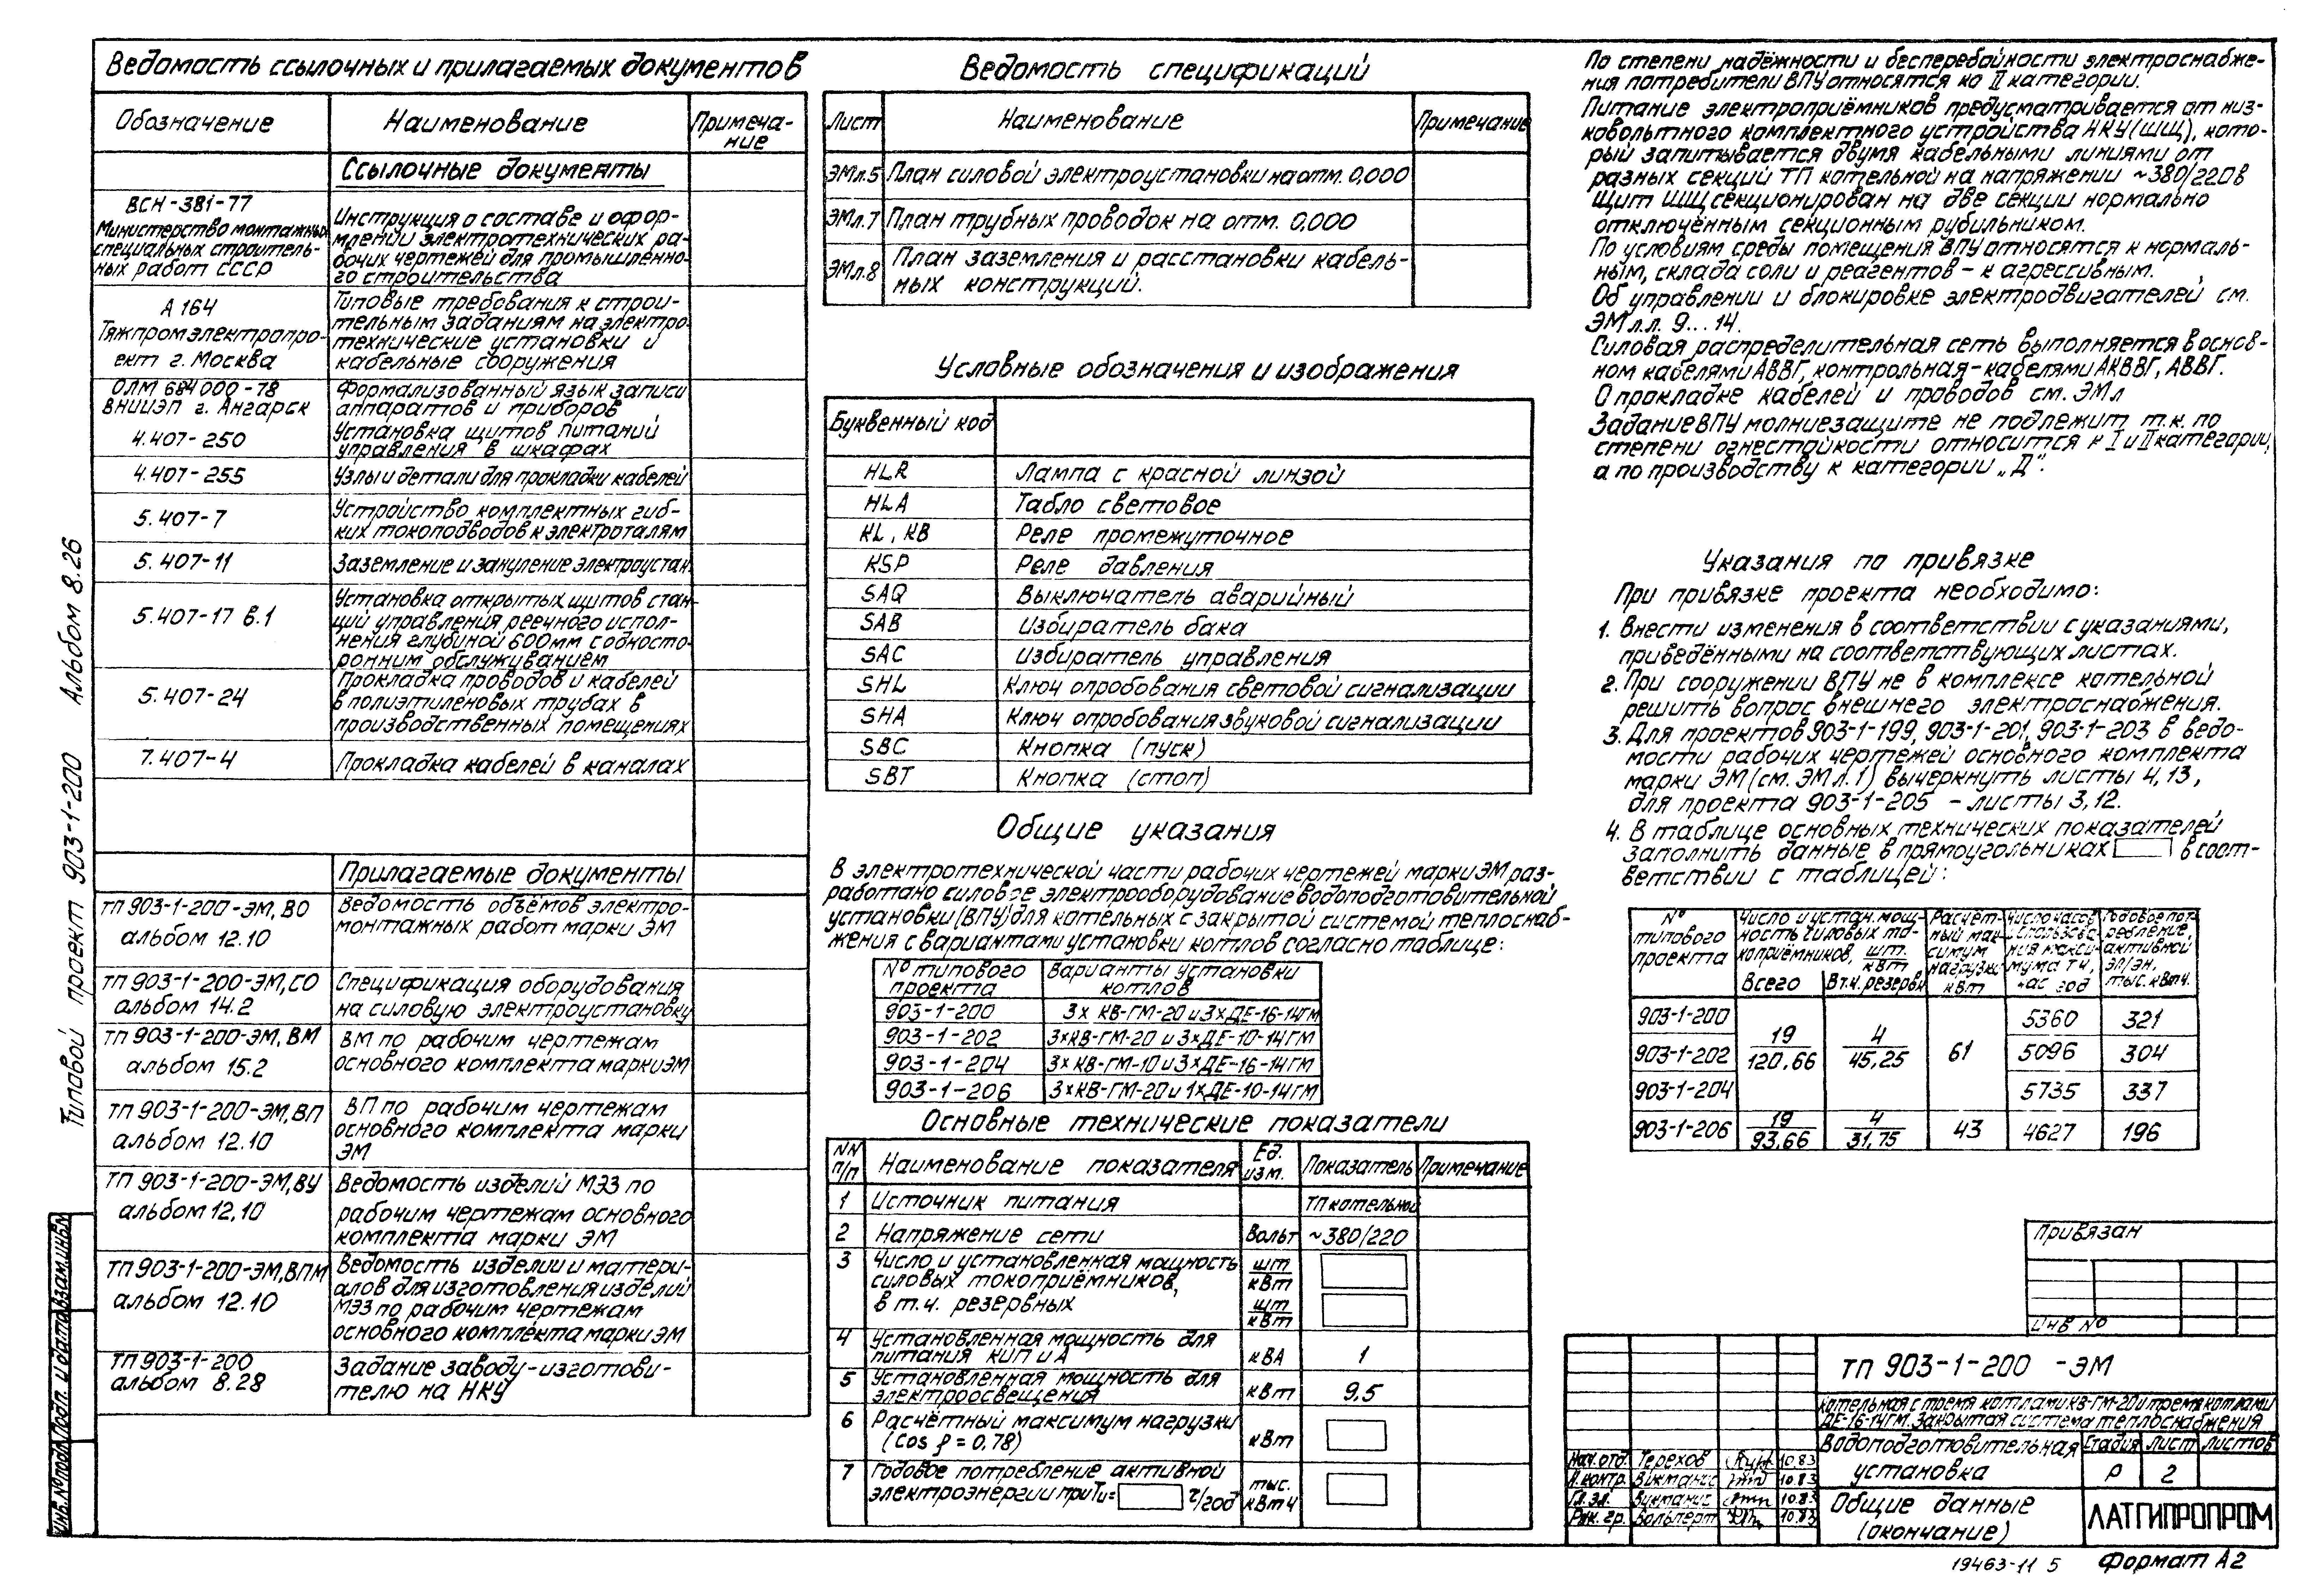 Ведомость ссылочных и прилагаемых документов
Обозначение
Наименование
Примеча-
ние
Ссылочные документы
ВСН-381-77
Министерство монтажных
специальных строитель-
ных работ СССР
Инструкция о составе и офор-
млении электротехнических ра-
бочих чертежей для промышленно-
го строительства
А 164
Тяжпромэлектропро-
ект г. Москва
Типовые требования к строи-
тельным заданиям на электро-
технические установки и
кабельные сооружения
ОЛМ 684 000-78
ВНИИЭП г. Ангарск
Формализованный язык записи
аппаратов и приборов
4.407-250
Установка щитов питаний
управления в шкафах
4.407-255
Узлы и детали для прокладки кабелей
5.407-7
Устройство комплектных гиб-
ких токоподводов к электроталям
5.407-11
Заземление и зануление электроустан.
5.407-17 в.1
Установка открытых щитов стан-
ций управления реечного испол-
нения глубиной 600мм с односто-
ронним обслуживанием
5.407-24
Прокладка проводов и кабелей
в полиэтиленовых трубах в
производственных помещениях
7.407-4
Прокладка кабелей в каналах
Прилагаемые документы
ТП 903-1-200-ЭМ, ВО
альбом 12.10
Ведомость объёмов электро-
монтажных работ марки ЭМ
ТП 903-1-200-ЭМ, СО
альбом 14.2
Спецификация оборудования
на силовую электроустановку
ТП 903-1-200-ЭМ, ВМ
альбом 15.2
ВМ по рабочим чертежам
основного комплекта марки ЭМ
ТП 903-1-200-ЭМ, ВП
альбом 12.10
ВП по рабочим чертежам
основного комплекта марки
ЭМ
ТП 903-1-200-ЭМ, ВУ
альбом 12.10
Ведомость изделий МЭЗ по
рабочим чертежам основного
комплекта марки ЭМ
ТП 903-1-200-ЭМ, ВПМ
альбом 12.10
Ведомость изделии и матери-
алов для изготовления изделий
МЭЗ по рабочим чертежам
основного комплекта марки ЭМ
ТП 903-1-200
альбом 8.28
Задание заводу-изготови-
телю на НКУ
Типовой проект 903-1-200 Альбом 8.26
Инв.№ подл. Подп. и дата Взам.инв.№
Ведомость спецификаций
Лист
Наименование
Примечание
ЭМл.5 План силовой электроустановки на отм. 0,000
ЭМл.7 План трубных проводок на отм. 0,000
ЭМл.8
План заземления и расстановки кабель-
ных конструкций.
Условные обозначения и изображения
Буквенный код
HLR Лампа с красной линзой
HLA Табло световое
KL, KB Реле промежуточное
KSP Реле давления
SAQ Выключатель аварийный
SAB Избиратель бака
SAC Избиратель управления
SHL Ключ опробования световой сигнализации
SHA Ключ опробования звуковой сигнализации
SBC Кнопка (пуск)
SBT Кнопка (стоп)
Общие указания
В электротехнической части рабочих чертежей марки ЭМ раз-
работано силовое электрооборудование водоподготовительной
установки (ВПУ) для котельных с закрытой системой теплоснаб-
жения с вариантами установки котлов согласно таблице:
№ типового
проекта
Варианты установки
котлов
903-1-200 3х КВ-ГМ-20 и 3хДЕ-16-14ГМ
903-1-202 3хКВ-ГМ-20 и 3хДЕ-10-14ГМ
903-1-204 3хКВ-ГМ-10 и 3хДЕ-16-14ГМ
903-1-206 3хКВ-ГМ-20 и 1хДЕ-10-14ГМ
Основные технические показатели
NN
п/п
Наименование показателя
Ед.
изм.
Показатель
Примечание
1 Источник питания ТП котельной
2 Напряжение сети Вольт ~380/220
3 Число и установленная мощность
силовых токоприёмников,
в т.ч. резервных
шт
кВт
шт
кВт
4 Установленная мощность для
питания КИП и А кВА 1
5 Установленная мощность для
электроосвещения кВт 9,5
6 Расчётный максимум нагрузки
(Cos φ = 0,78) кВт
7 Годовое потребление активной
электроэнергии при Ти= г/год
тыс.
кВт ч
По степени надёжности и бесперебойности электроснабже-
ния потребители ВПУ относятся ко II категории.
Питание электроприёмников предусматривается от низ-
ковольтного комплектного устройства НКУ(ШЩ), кото-
рый запитывается двумя кабельными линиями от
разных секций ТП котельной на напряжении ~380/220в
Щит ШЩ секционирован на две секции нормально
отключённым секционным рубильником.
По условиям среды помещения ВПУ относятся к нормаль-
ным, склада соли и реагентов - к агрессивным.
Об управлении и блокировке электродвигателей см.
ЭМ л.л. 9...14.
Силовая распределительная сеть выполняется в основ-
ном кабелями АВВГ, контрольная-кабелями АКВВГ, АВВГ.
О прокладке кабелей и проводов см. ЭМ л
Задание ВПУ молниезащите не подлежит т.к. по
степени огнестойкости относится к I и II категории,
а по производству к категории „Д".
Указания по привязке
При привязке проекта необходимо:
1. Внести изменения в соответствии с указаниями,
приведёнными на соответствующих листах.
2. При сооружении ВПУ не в комплексе котельной
решить вопрос внешнего электроснабжения.
3. Для проектов 903-1-199, 903-1-201, 903-1-203 в ведо-
мости рабочих чертежей основного комплекта
марки ЭМ (см. ЭМ л.1) вычеркнуть листы 4, 13,
для проекта 903-1-205 - листы 3, 12.
4. В таблице основных технических показателей
заполнить данные в прямоугольниках в соот-
ветствии с таблицей:
№
типового
проекта
Число и устан. мощ-
ность силовых то-
коприёмников, шт.
кВт
Всего
В т.ч. резервн
Расчёт-
ный мак-
симум
нагрузки
кВт
Число часов
использова-
ния макси-
мума Ти,
час год
Годовое пот-
ребление,
активной
эл/эн,
тыс. кВт ч.
903-1-200 5360 321
19
120,66
4
45,25
61
903-1-202 5096 304
903-1-204 5735 337
903-1-206
19
93,66
4
31,75
43 4627 196
Привязан
Инв №
ТП 903-1-200 -ЭМ
Котельная с тремя котлами КВ-ГМ-20 и тремя котлами
ДЕ-16-14ГМ. Закрытая система теплоснабжения
Водоподготовительная
установка
Стадия Лист Листов
Р 2
Общие данные
(окончание)
ЛАТГИПРОПРОМ
Нач. отд. Терехов 10.83
Н. контр. Викманис 10.83
Гл. эл. Викманис 10.83
Рук. гр. Вольперт 10.83
19463-11 5
Формат А2